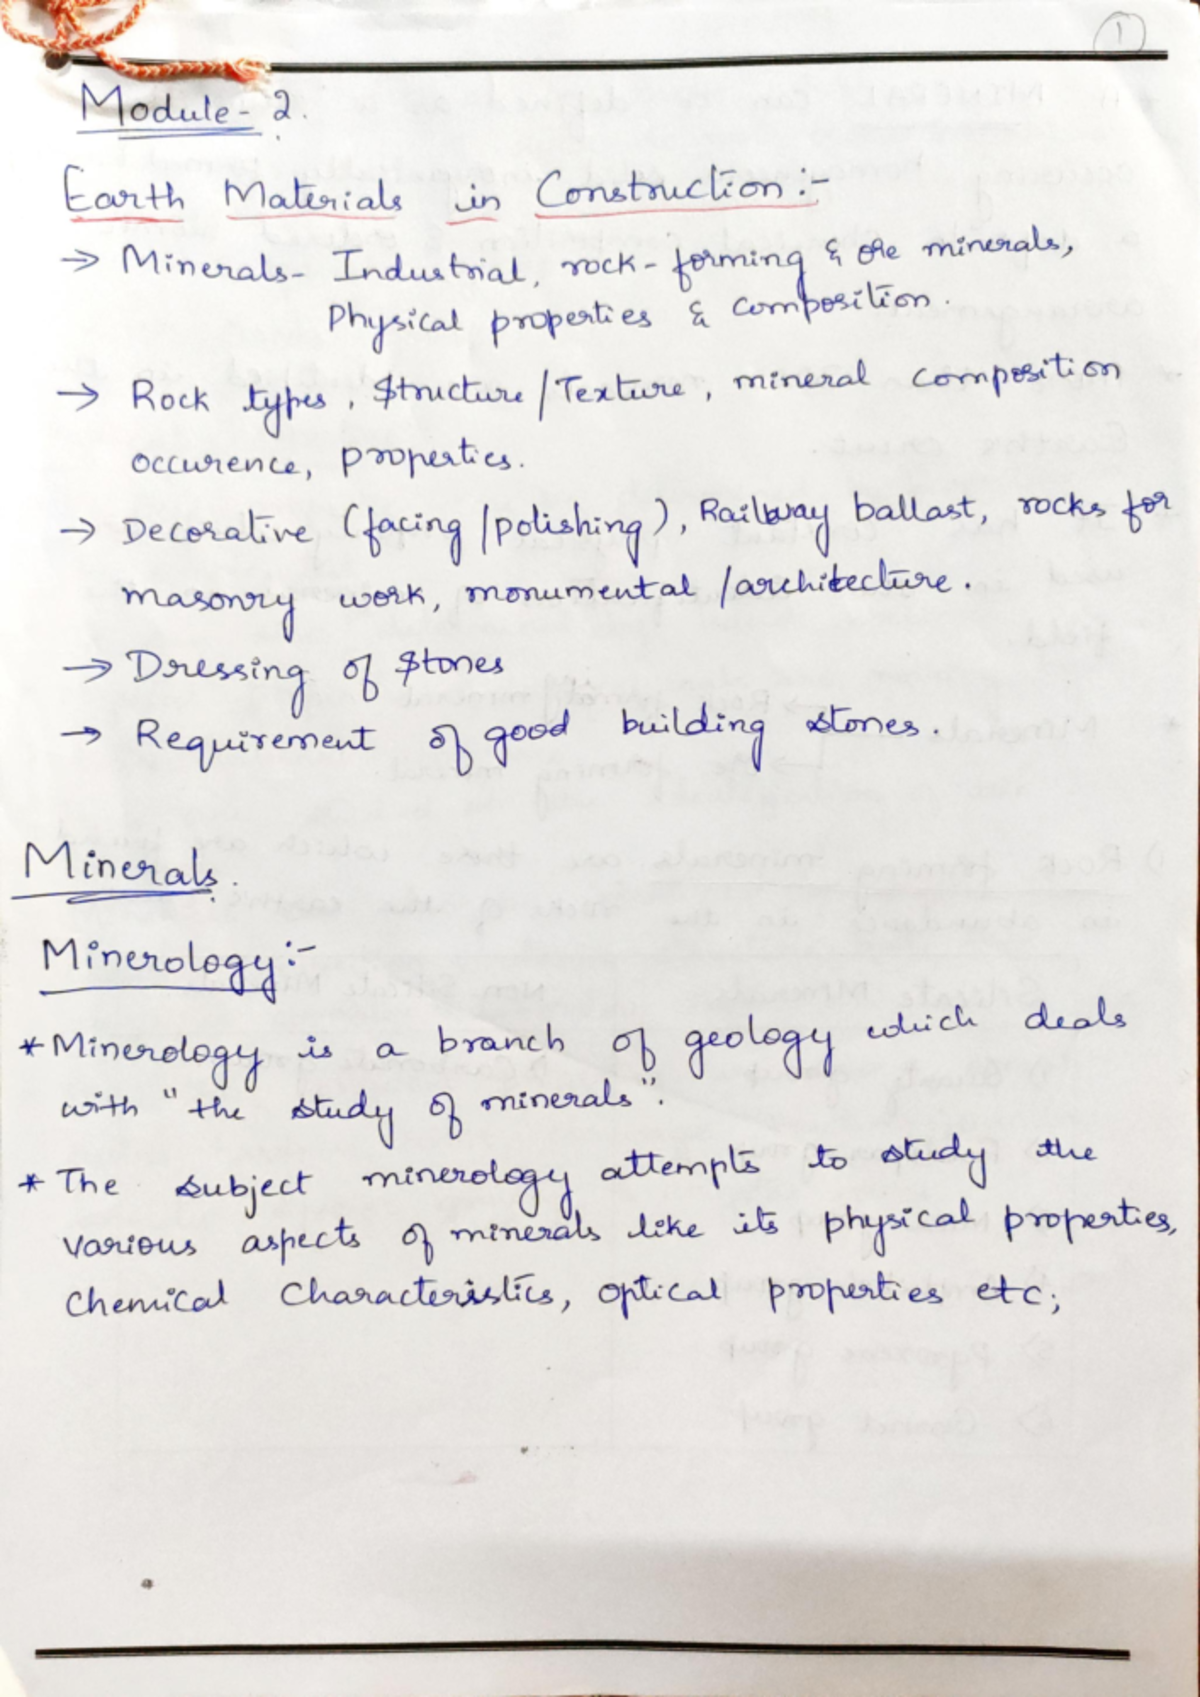 1
Module- 2.
Earth Materials in Construction:-
→ Minerals- Industrial, rock-forming & ore minerals,
Physical properties & composition.
→ Rock types, Structure/Texture, mineral composition
occurence, properties.
→ Decorative (facing/polishing), Railway ballast, rocks for
masonry work, monumental/architecture.
→ Dressing of Stones
→ Requirement of good building stones.
Minerals.
Minerology:-
* Minerology is a branch of geology which deals
with "the study of minerals".
* The subject minerology attempts to study the
various aspects of minerals like its physical properties,
chemical characteristics, optical properties etc;